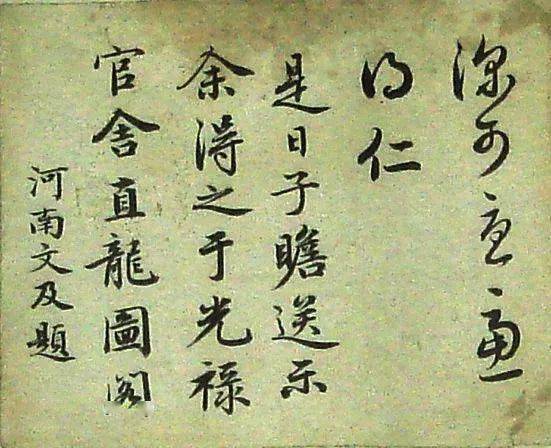 深可
仁
是日子瞻送示
余得之于光禄
官舍直龍圖閣
河南文及題